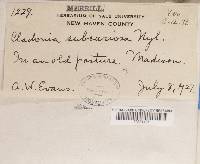 1229.
MERRILL
HERBARIUM OF YALE UNIVERSITY
NEW HAVEN COUNTY
Cladonia subcariosa Nyl.
In an old pasture, Madison.
A. W. Evans. July 8, 1927